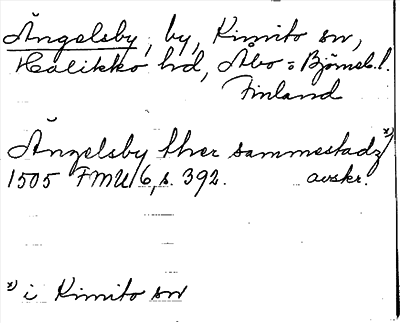 Ängelsby, by, Kimito sn,
Halikko hd, Åbo=Björneb.l.
Finland
Ängelsby ther sammestadz x)
1505 FMU 6, s. 392. avskr.
x) i Kimito sn